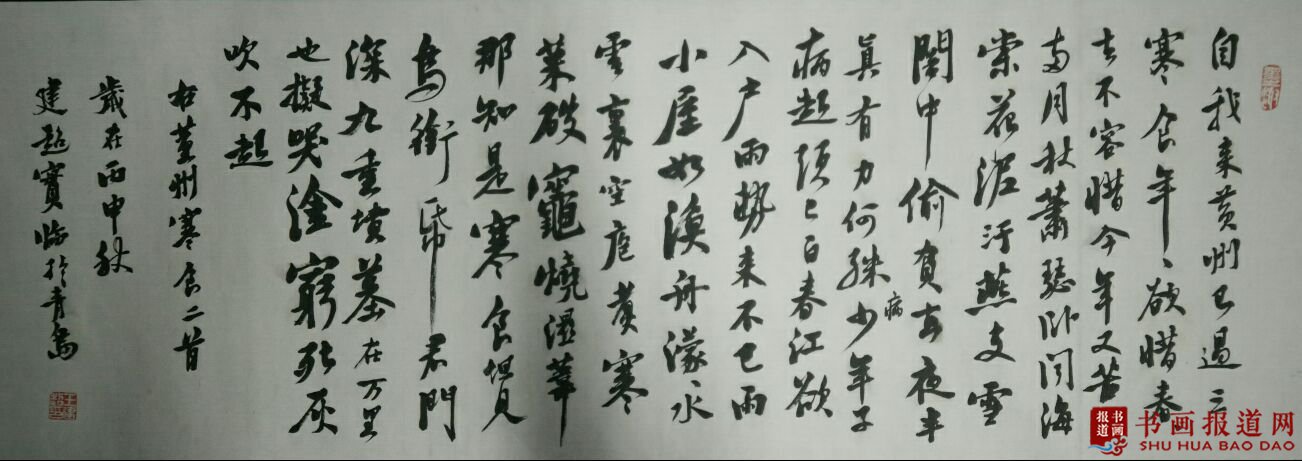 自我来黄州已過三
寒食年〻欲惜春
去不容惜今年又苦
雨月秋蕭瑟卧聞海
棠花泥汙燕支雪
闇中偷負去夜半
真有力何殊少年子
病
病起須已白春江欲
入户雨勢来不已雨
小屋如漁舟濛〻水
雲裏空庖煮寒
菜破竈燒濕葦
那知是寒食但見
烏銜帋君門
深九重墳墓在万里
也擬哭塗窮死灰
吹不起
右黄州寒食二首
歲在丙申秋
建超寶臨於青島
书画
报道
书画报道网
SHU HUA BAO DAO